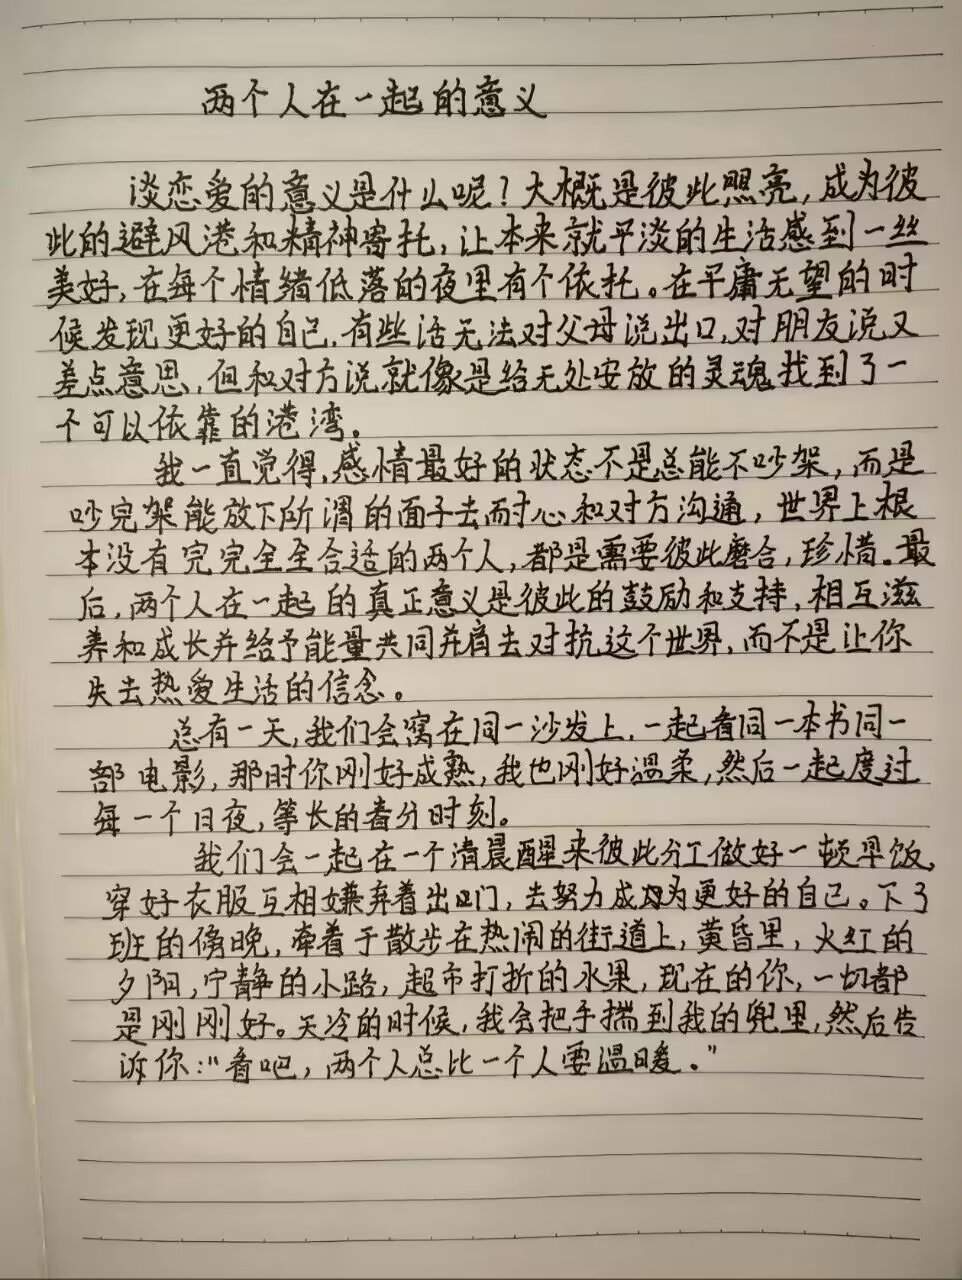 两个人在一起的意义
谈恋爱的意义是什么呢？大概是彼此照亮，成为彼
此的避风港和精神寄托，让本来就平淡的生活感到一丝
美好，在每个情绪低落的夜里有个依托。在平庸无望的时
候发现更好的自己，有些话无法对父母说出口，对朋友说又
差点意思，但和对方说就像是给无处安放的灵魂找到了一
个可以依靠的港湾。
我一直觉得，感情最好的状态不是总能不吵架，而是
吵完架能放下所谓的面子去耐心和对方沟通，世界上根
本没有完完全全合适的两个人，都是需要彼此磨合，珍惜。最
后，两个人在一起的真正意义是彼此的鼓励和支持，相互滋
养和成长并给予能量共同并肩去对抗这个世界，而不是让你
失去热爱生活的信念。
总有一天，我们会窝在同一沙发上，一起看同一本书同一
部电影，那时你刚好成熟，我也刚好温柔，然后一起度过
每一个日夜，等长的春分时刻。
我们会一起在一个清晨醒来彼此分工做好一顿早饭，
穿好衣服互相嫌弃着出门，去努力成为更好的自己。下了
班的傍晚，牵着手散步在热闹的街道上，黄昏里，火红的
夕阳，宁静的小路，超市打折的水果，现在的你，一切都
是刚刚好。天冷的时候，我会把手揣到我的兜里，然后告
诉你：“看吧，两个人总比一个人要温暖。”